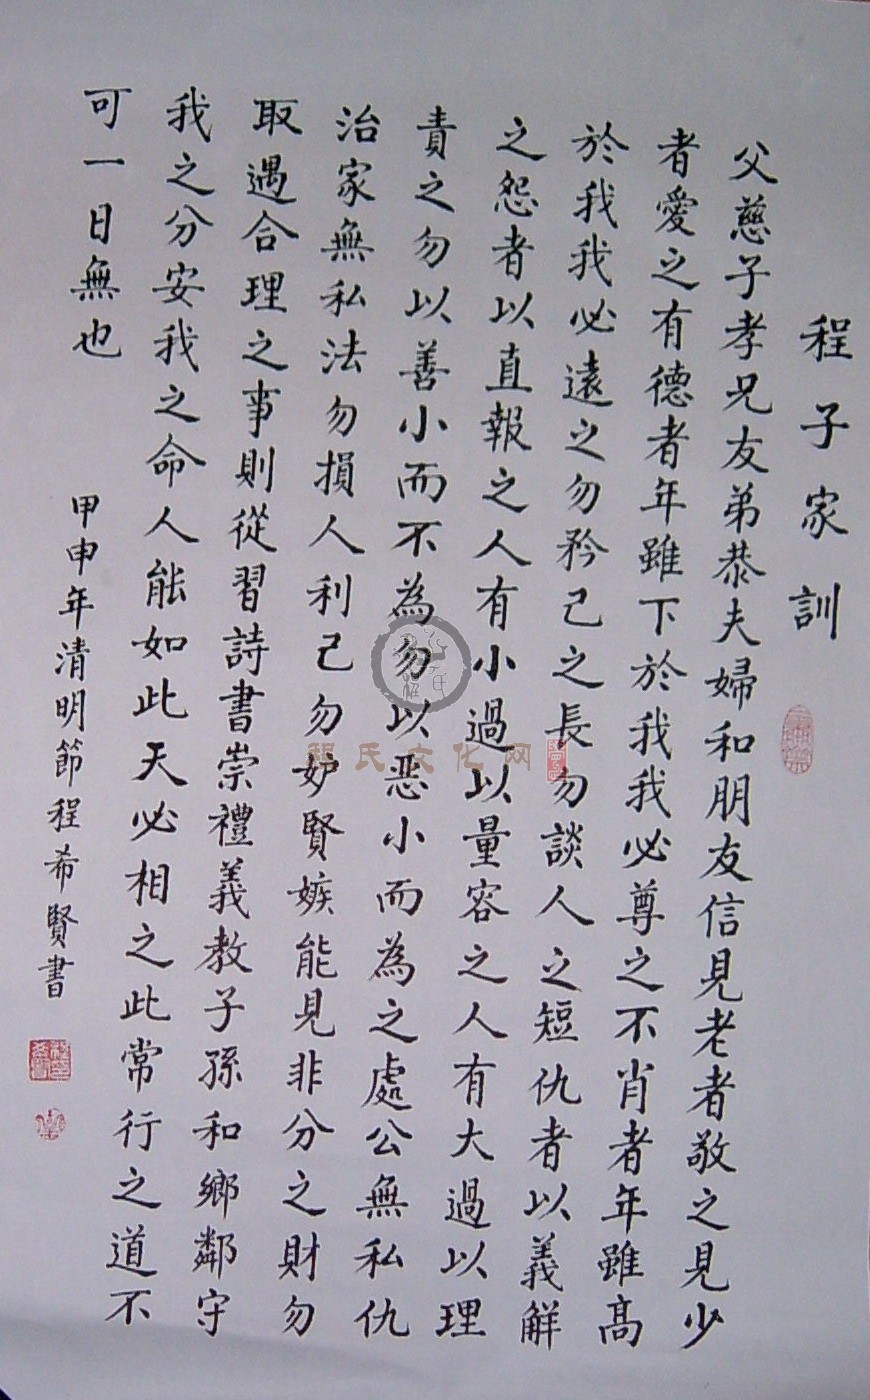 程子家訓
父慈子孝兄友弟恭夫婦和朋友信見老者敬之見少
者愛之有德者年雖下於我我必尊之不肖者年雖高
於我我必遠之勿矜己之長勿談人之短仇者以義解
之怨者以直報之人有小過以量容之人有大過以理
責之勿以善小而不為勿以惡小而為之處公無私仇
治家無私法勿損人利己勿妒賢嫉能見非分之財勿
取遇合理之事則從習詩書崇禮義教子孫和鄉鄰守
我之分安我之命人能如此天必相之此常行之道不
可一日無也
甲申年清明節程希賢書
程氏文化网